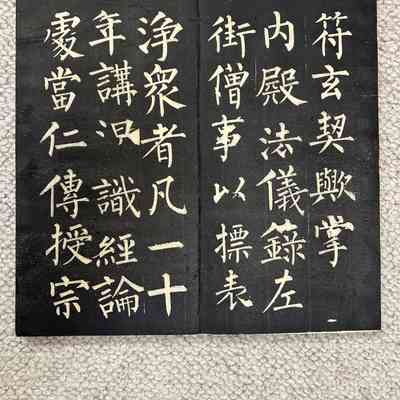 符玄契歟掌
内殿法儀錄左
街僧事以摽表
淨衆者凡一十
年講識經論
處當仁傳授宗